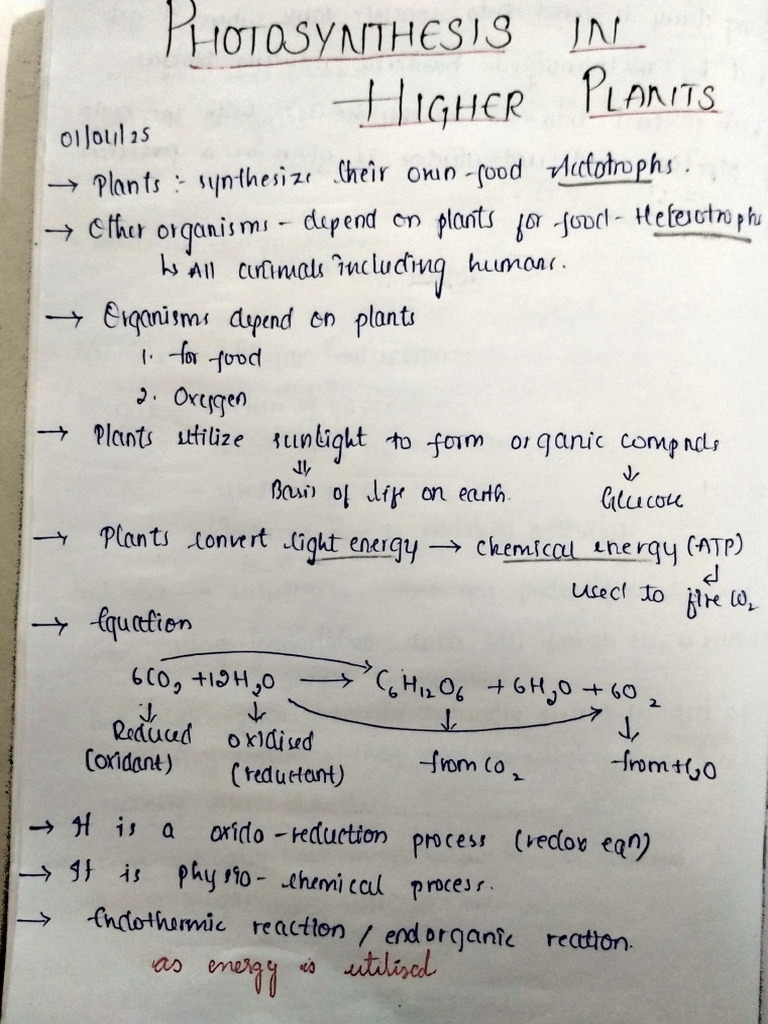 PHOTOSYNTHESIS IN
HIGHER PLANTS
01/01/25
→ Plants :- synthesize their own food Autotrophs.
→ Other organisms - depend on plants for food - Heterotrophs
↳ All animals including humans.
→ Organisms depend on plants
1. for food
2. Oxygen
→ Plants utilize sunlight to form organic compnds
⇓ ↓
Basis of life on earth. Glucose
→ Plants convert light energy → chemical energy (ATP)
used to fix CO₂
→ Equation
6CO₂ + 12H₂O → C₆H₁₂O₆ + 6H₂O + 6O₂
Reduced oxidised
(oxidant) (reductant) from CO₂ from H₂O
→ It is a oxido-reduction process (redox eqn)
→ It is physio-chemical process.
→ Endothermic reaction / endorganic reation.
as energy is utilised